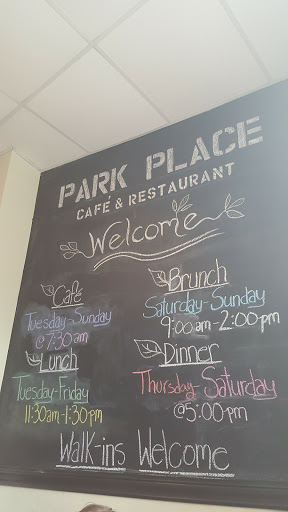 PARK PLACE
CAFÉ & RESTAURANT
Welcome
Café
Tuesday-Sunday
@ 7:30 am
Lunch
Tuesday-Friday
11:30am-1:30pm
Brunch
Saturday-Sunday
9:00am-2:00pm
Dinner
Thursday-Saturday
@5:00pm
Walk-ins Welcome